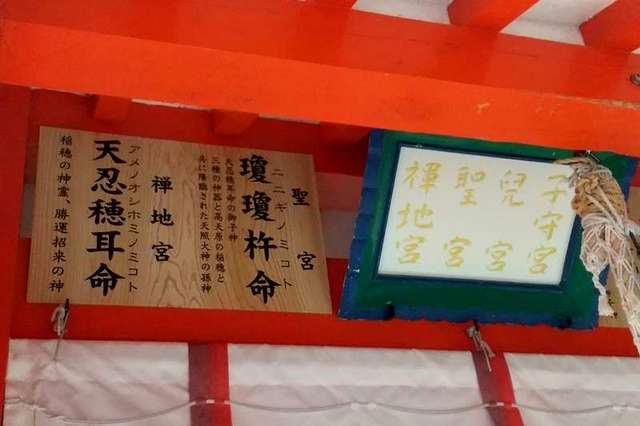 聖宮
ニニギノミコト
瓊瓊杵命
天忍穂耳命の御子神
三種の神器と高天原の稲穂と
共に降臨された天照大神の孫神
禅地宮
アメノオシホミノミコト
天忍穂耳命
稲穂の神霊、勝運招来の神
子守宮
兒宮
聖宮
禅地宮